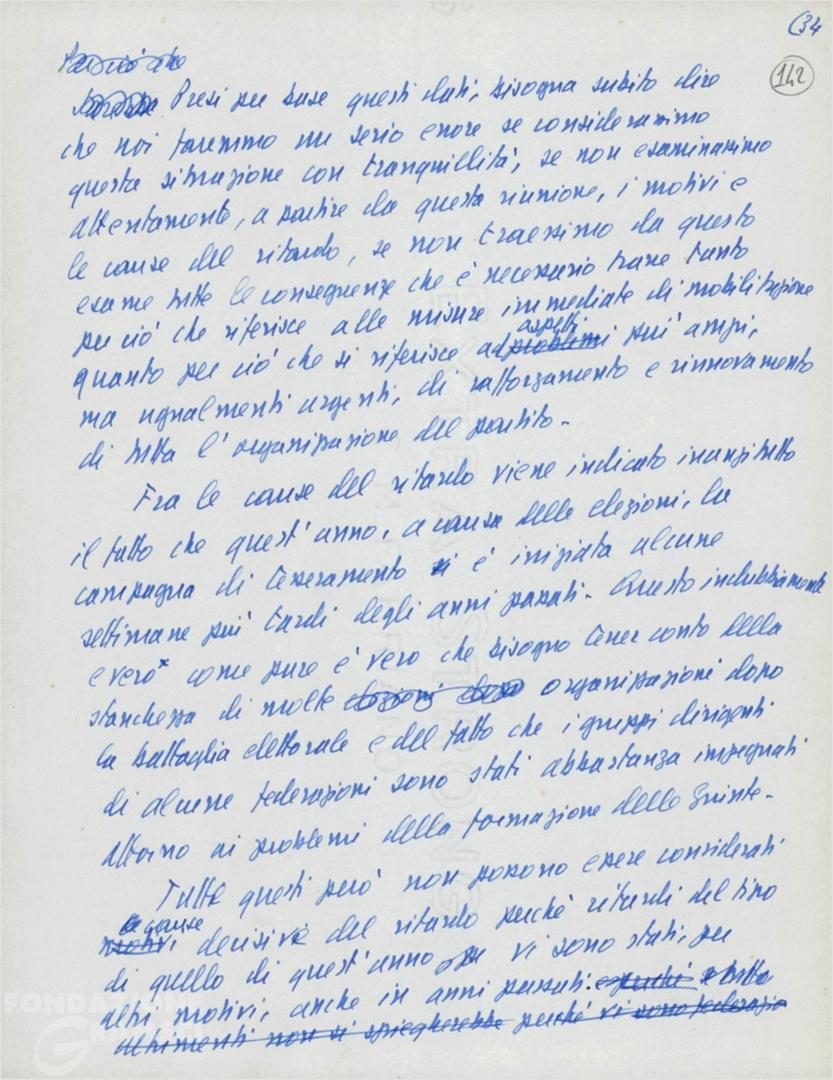 (34
142
Presi per base questi dati, bisogna subito dire
che noi faremmo un serio errore se considerassimo
questa situazione con tranquillità, se non esaminassimo
attentamente, a partire da questa riunione, i motivi e
le cause del ritardo, se non traessimo da questo
esame tutte le conseguenze che è necessario trarre tanto
per ciò che riferisce alle misure immediate di mobilitazione
aspetti
quanto per ciò che si riferisce ad problemi più ampi,
ma ugualmenti urgenti, di rafforzamento e rinnovamento
di tutta l'organizzazione del partito.
Fra le cause del ritardo viene indicato inanzitutto
il fatto che quest'anno, a causa delle elezioni, la
campagna di tesseramento si è iniziata alcune
settimane più tardi degli anni passati. Questo indubbiamente
è vero come pure è vero che bisogna tener conto della
stanchezza di molte elezioni dopo organizzazioni dopo
la battaglia elettorale e del fatto che i gruppi dirigenti
di alcune federazioni sono stati abbastanza impegnati
attorno ai problemi della formazione delle Giunte.
Tutte questi però non possono essere considerati
le cause
motivi decisive del ritardo perché ritardi del tipo
di quello di quest'anno vi sono stati, per
altri motivi, anche in anni passati. e tutto
altrimenti non si spiegherebbe perché vi sono federazio
FONDAZIONE